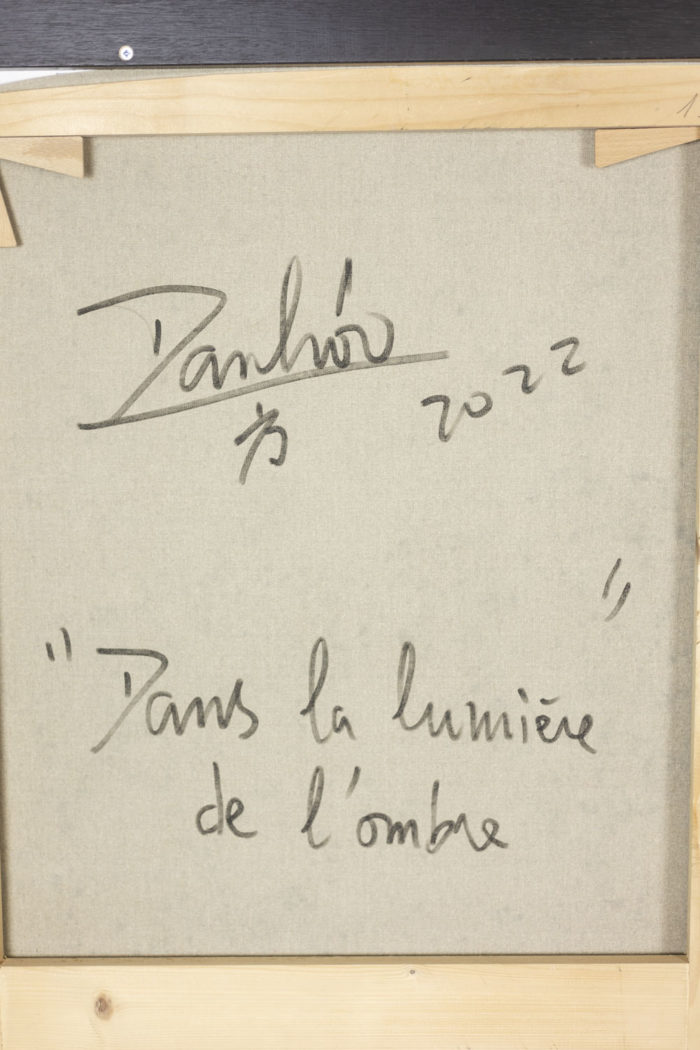 Danhôo 2022
方
"Dans la lumière
de l'ombre"